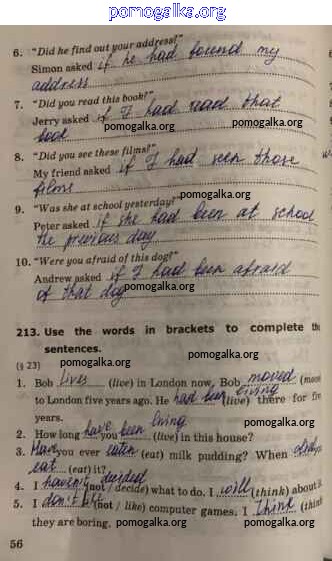 pomogalka.org
6. "Did he find out your address?"
Simon asked if he had found my
address
7. "Did you read this book?"
pomogalka.org
Jerry asked if I had read that
pomogalka.org
book
pomogalka.org
8. "Did you see these films?"
My friend asked if I had seen those
films
pomogalka.org
9. "Was she at school yesterday?"
Peter asked if she had been at school
the previous day
pomogalka.org
10. "Were you afraid of this dog?"
Andrew asked if I had been afraid
of that dog
pomogalka.org
213. Use the words in brackets to complete the
sentences.
pomogalka.org
(§ 23)
pomogalka.org
1. Bob lives (live) in London now. Bob moved (move
to London five years ago. He had been living (live) there for five
years.
pomogalka.org
2. How long have you been living (live) in this house?
3. Have you ever eaten (eat) milk pudding? When did you
eat (eat) it?
pomogalka.org
4. I haven't decided (not / decide) what to do. I will (think) about it
5. I don't like (not / like) computer games. I think (think
they are boring.
pomogalka.org
pomogalka.org
56